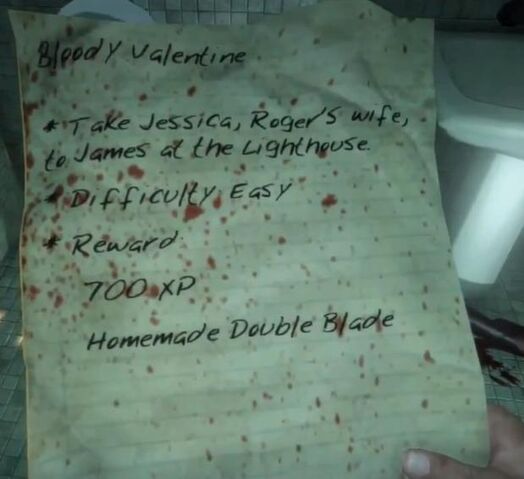 Bloody Valentine
* Take Jessica, Roger's wife,
to James at the Lighthouse.
* Difficulty Easy
* Reward
700 XP
Homemade Double Blade